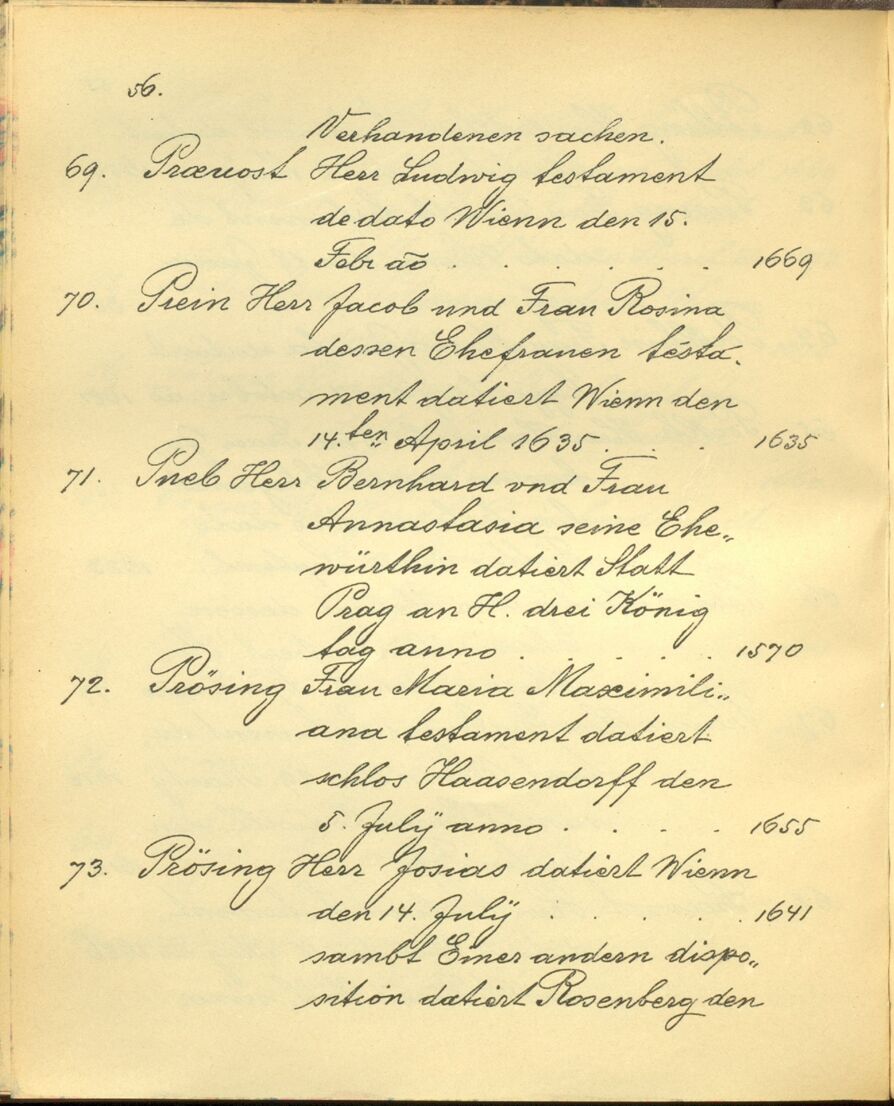 56.
Verhandenen sachen.
69. Præuost Herr Ludwig testament
de dato Wienn den 15.
Febr aõ . . . . . . . 1669
70. Prein Herr Jacob und Frau Rosina
dessen Ehefrauen testa-
ment datiert Wienn den
14.ten April 1635 . . . 1635
71. Pueb Herr Bernhard vnd Frau
Annastasia seine Ehe„
würthin datiert Statt
Prag an H. drei König
tag anno . . . . . . 1570
72. Prösing Frau Maria Maximili„
ana testament datiert
schlos Haasendorff den
5. Julÿ anno . . . . 1655
73. Prösing Herr Josias datiert Wienn
den 14. Julÿ . . . . . 1641
sambt Einer andern dispo„
sition datiert Rosenberg den